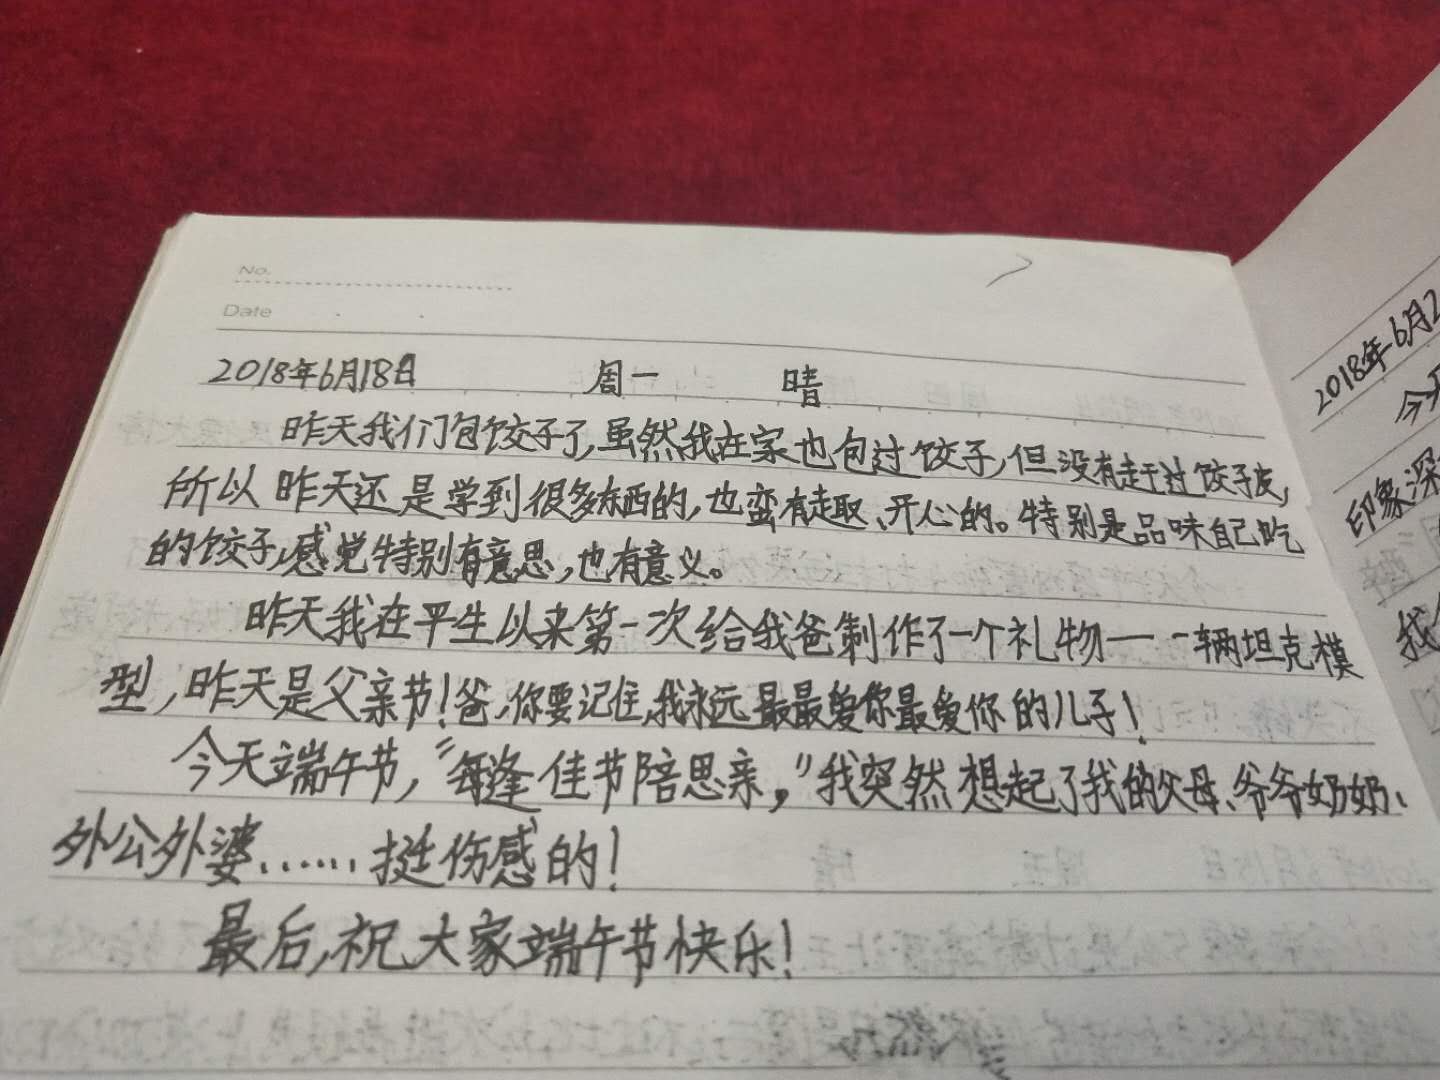 No.
Date
2018年6月18日 周一 晴
昨天我们包饺子了,虽然我在家也包过饺子,但没有赶过饺子皮,
所以昨天还是学到很多东西的,也蛮有趣、开心的。特别是品味自己吃
的饺子,感觉特别有意思,也有意义。
昨天我在平生以来第一次给我爸制作了一个礼物——一辆坦克模
型,昨天是父亲节!爸,你要记住,我永远最最爱你最爱你的儿子!
今天端午节,“每逢佳节陪思亲,”我突然想起了我的父母、爷爷奶奶、
外公外婆……挺伤感的!
最后,祝大家端午节快乐!
2018年6月2
今天
印象深
我